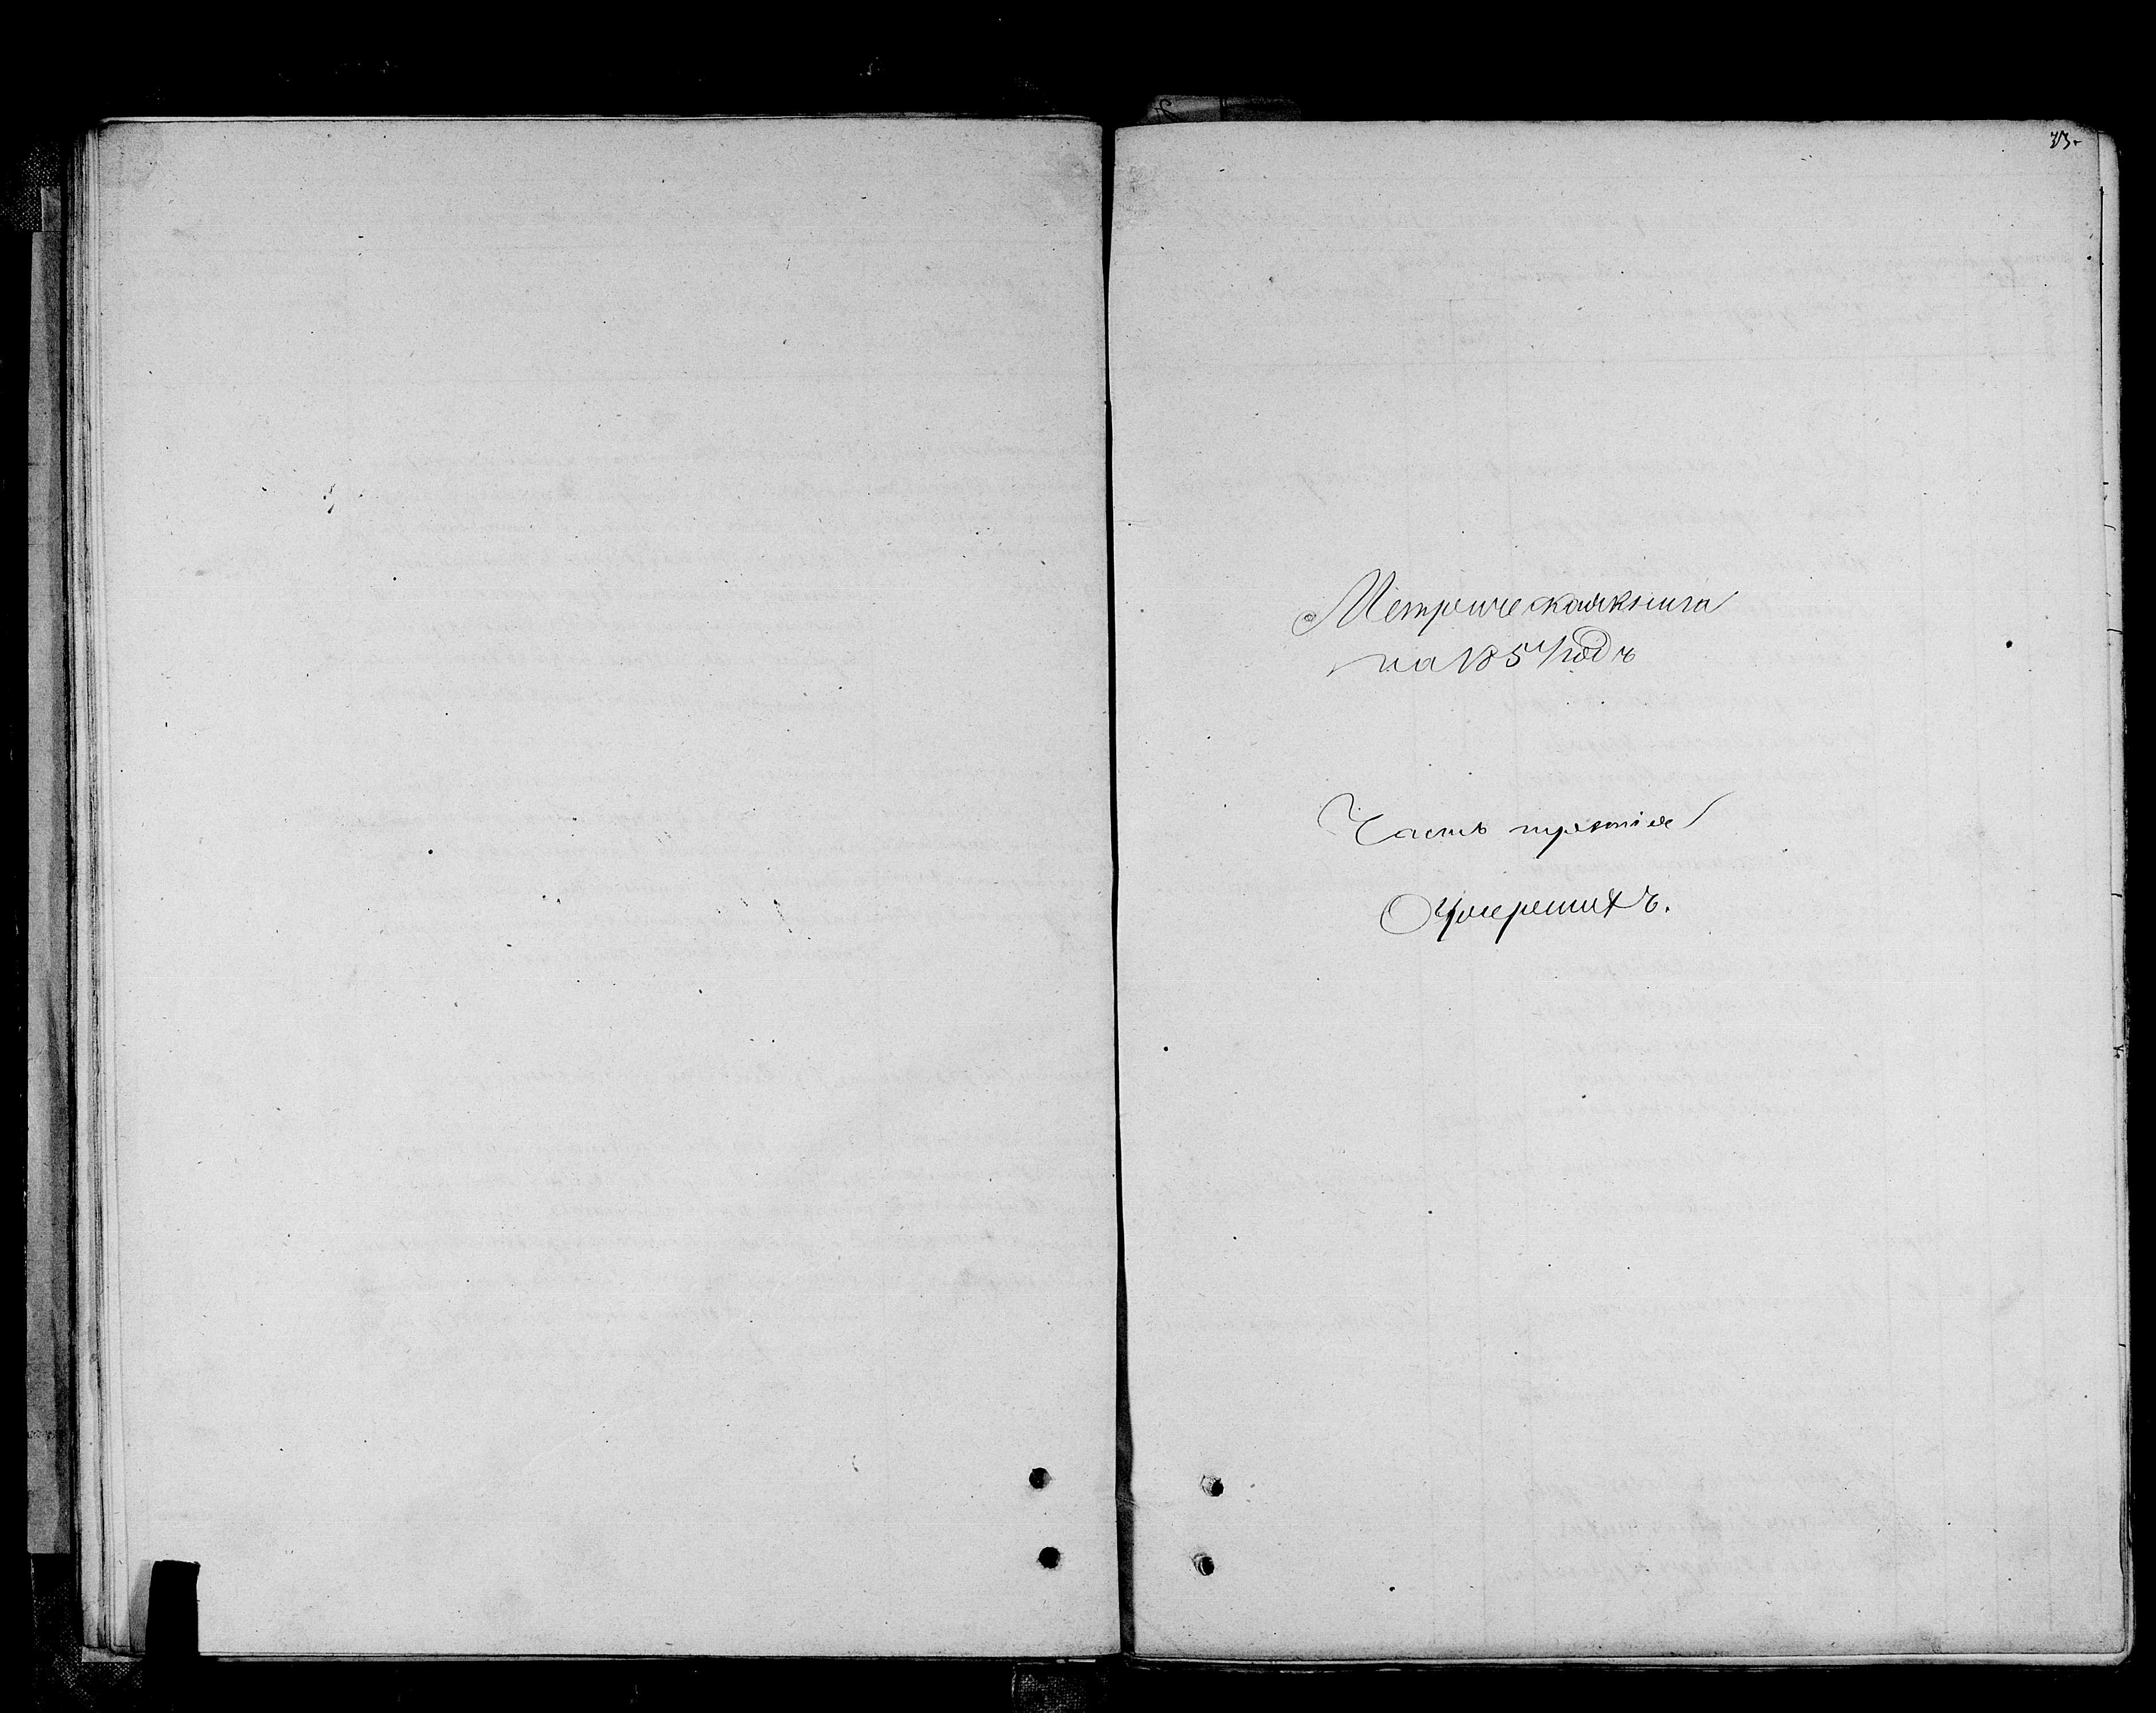 Метрическая книга
на 1857 годъ
Часть третія
О умершихъ.